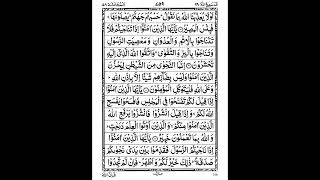 لَوْلَا يُعَذِّبُنَا اللّٰهُ بِمَا نَقُوْلُ حَسْبُهُمْ جَهَنَّمُ يَصْلَوْنَهَا
فَبِئْسَ الْمَصِيْرُ يٰٓاَيُّهَا الَّذِيْنَ اٰمَنُوْٓا اِذَا تَنَاجَيْتُمْ فَلَا
تَتَنَاجَوْا بِالْاِثْمِ وَالْعُدْوَانِ وَمَعْصِيَتِ الرَّسُوْلِ
وَتَنَاجَوْا بِالْبِرِّ وَالتَّقْوٰى وَاتَّقُوا اللّٰهَ الَّذِيْٓ اِلَيْهِ
تُحْشَرُوْنَ اِنَّمَا النَّجْوٰى مِنَ الشَّيْطٰنِ لِيَحْزُنَ
الَّذِيْنَ اٰمَنُوْا وَلَيْسَ بِضَآرِّهِمْ شَيْئًا اِلَّا بِاِذْنِ اللّٰهِ
وَعَلَى اللّٰهِ فَلْيَتَوَكَّلِ الْمُؤْمِنُوْنَ يٰٓاَيُّهَا الَّذِيْنَ اٰمَنُوْٓا
اِذَا قِيْلَ لَكُمْ تَفَسَّحُوْا فِي الْمَجٰلِسِ فَافْسَحُوْا يَفْسَحِ
اللّٰهُ لَكُمْ وَاِذَا قِيْلَ انْشُزُوْا فَانْشُزُوْا يَرْفَعِ اللّٰهُ
الَّذِيْنَ اٰمَنُوْا مِنْكُمْ وَالَّذِيْنَ اُوْتُوا الْعِلْمَ دَرَجٰتٍ
وَاللّٰهُ بِمَا تَعْمَلُوْنَ خَبِيْرٌ يٰٓاَيُّهَا الَّذِيْنَ اٰمَنُوْٓا
اِذَا نَاجَيْتُمُ الرَّسُوْلَ فَقَدِّمُوْا بَيْنَ يَدَيْ نَجْوٰىكُمْ
صَدَقَةً ذٰلِكَ خَيْرٌ لَّكُمْ وَاَطْهَرُ فَاِنْ لَّمْ تَجِدُوْا